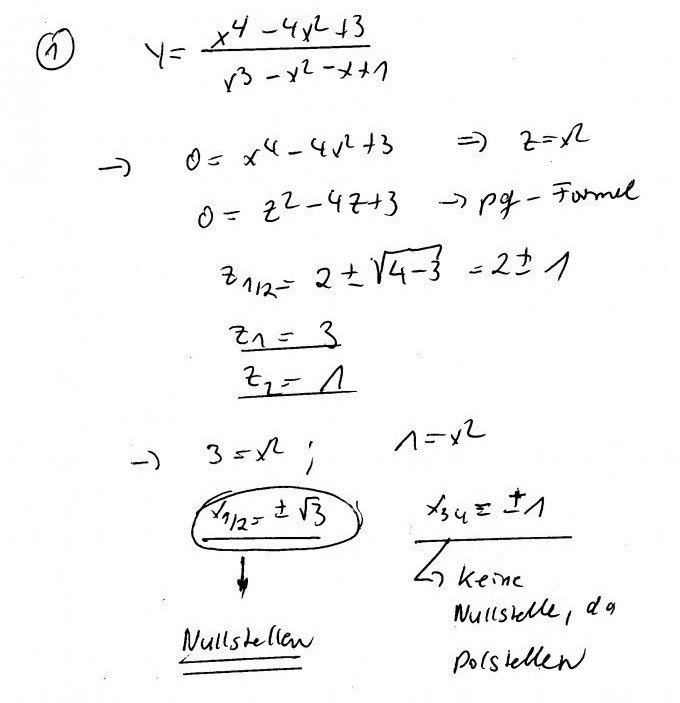 ① y = (x⁴ - 4x² + 3) / (x³ - x² - x + 1)
→ 0 = x⁴ - 4x² + 3 ⇒ z = x²
0 = z² - 4z + 3 → pq - Formel
z₁/₂ = 2 ± √(4-3) = 2 ± 1
z₁ = 3
z₂ = 1
→ 3 = x² ; 1 = x²
x₁/₂ = ± √3 x₃₄ = ± 1
↓ ↳ keine
Nullstelle, da
Nullstellen
Polstellen